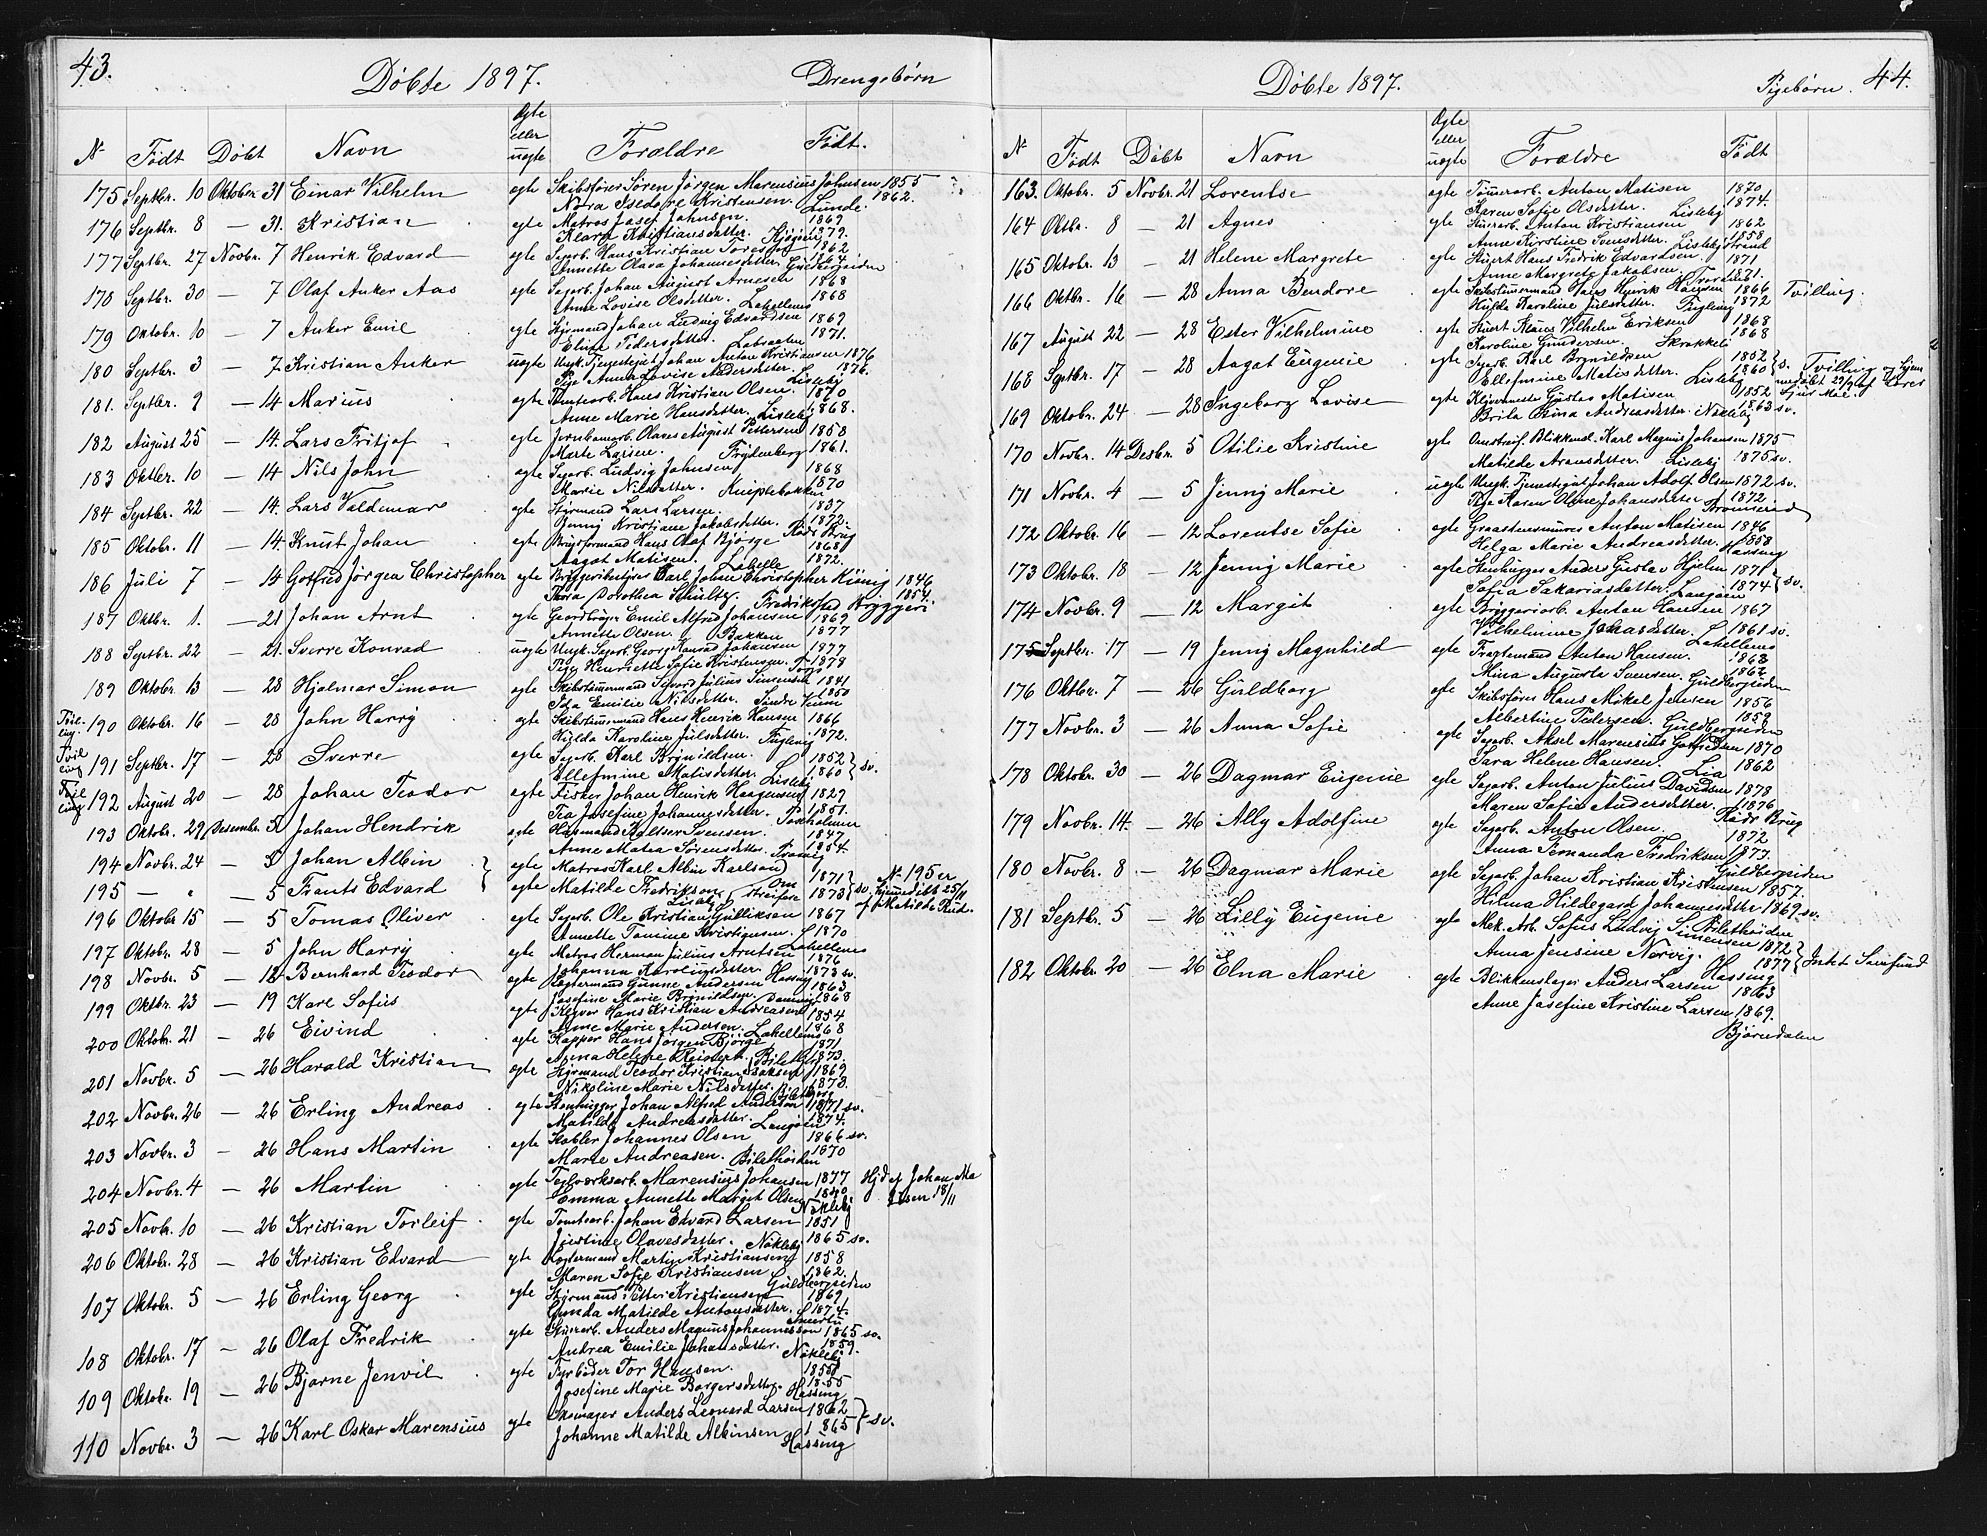 43.
Döbte 1897.
Drengebörn
Ægte
eller
uægte
N.
Födt
Döbt
Navn
Forældre
Födt.
175 Septbr. 10 Oktober 31 Einar Vilhelm ægte Skibsförer Sören Jörgen Marensius Johnsen 1855
Nora Isedore Kristensen. Lunde. 1862.
176 Septbr. 8 — 31. Kristian ægte Matros Josef Johnsen. 1869
Klara Kristiansdatter.
177 Septbr. 27 Novbr. 7 Henrik Edvard ægte Sagarb. Hans Kristian Toresen 1862
Annette Olava Johannesdatter. Guldbergsiden 1864
178 Septbr. 30 — 7 Olaf Anker Aas ægte Sagarb. Johan August Arnesen 1868
Anne Lovise Olsdatter. Lahellens 1868
179 Oktobr. 10 — 7 Anker Emil ægte Styrmand Johan Ludvig Edvardsen 1869
Elise Pedersdatter. 1871.
180 Septbr. 3 — 7 Kristian Anker uægte Ungk. Tjenestegut Johan Anton Kristiansen 1876
Pige Anna Lovise Andersdatter. Lisleby 1876.
181. Septbr. 9 — 14 Marius ægte Tomtearb. Hans Kristian Olsen 1870
Anne Marie Hansdatter. Lisleby 1868.
182 August 25 — 14. Lars Fritjof ægte Jernbanarb. Olaves August Pettersen 1858
Marte Larsen. Frydenberg 1861.
183 Oktbr. 10 — 14 Nils John ægte Sagarb. Ludvig Johnsen 1868
Marie Nilsdatter. Kniplebakken 1870
184 Septbr. 22 — 14. Lars Valdemar ægte Styrmand Lars Larsen. 1837
Jenny Kristiane Jakobsdatter.
185 Oktobr. 11 — 14. Knut Johan ægte Brugsformand Hans Olaf Bjørge 1868
Aagot Matisen. Lahelle 1872.
186 Juli 7 — 14 Gotfred Jörgen Christopher ægte Bryggeribestyrer Carl Johan Christopher König 1846
Thora Dorothea Schultz. Fredrikstad Bryggeri 1854.
187 Oktbr. 1. — 21 Johan Arnt ægte Emil Alfred Johansen 1869
Annette Olsen. Bakken 1877
188 Septbr. 22 — 21. Sverre Konrad uægte Ungk. Sagarb. Georg Konrad Johansen 1877
Pige Henriette Sofie Kristensen. 1878
189 Oktobr. 13 — 28 Hjalmar Simon ægte Skibstömermand Sivord Julius Simensen 1841
Ida Emilie Nilsdatter. 1850
Tvil-
ling.
190 Oktobr. 16 — 28 John Harry ægte Skibstömermand Hans Henrik Hansen 1866
Hulda Karoline Julsdatter. Fuglevig 1872.
Tvil
ling
191 Septbr. 17 — 28 Sverre ægte Sagarb. Karl Brynildsen. 1852
Ellefmine Matisdatter. Lisleby 1860 } sv.
Tvil
ling
192 August 20 — 28 Johan Teodor ægte Fisker Johan Henrik Haagensen 1827
Tea Josefine Johannesdatter. 1851.
193 Oktobr. 29 Desembr. 5 Johan Hendrik ægte Svensen. 1847
Anne Matea Sörensdatter. 1854.
194 Novbr. 24 — 5 Johan Albin } ægte Matros Karl Albin Karlson 1871
195 — " — 5 Frants Edvard ægte Matilde Fredrikson Om-
streifere 1873 } sv.
No 195 er
hjemmedöbt 25/11
af Matilde Rud.
196 Oktobr. 15 — 5 Tomas Oliver ægte Sagarb. Ole Kristian Gulliksen 1867
Annette Tomine Kristiansen. Lahellens 1870
197 Oktobr. 28 — 5 John Harry ægte Matros Herman Julius Arntsen 1876
Johanna Karlinsdatter. Hassing 1873 sv.
198 Novbr. 5 — 12 Bernhard Teodor ægte Logtermand Gunne Andersen 1863
Josefine Marie Brynildsen. 1868
199 Oktbr. 23 — 19 Karl Sofus ægte Hans Kristian Andreasen 1854
Anne Marie Andersen. Lahellens 1868
200 Oktobr. 21 — 26 Eivind ægte Kapper Hans Jörgen Bjørge 1871
Anna Helene Reinert. 1873.
201 Novbr. 5 — 26 Harald Kristian ægte Styrmand Teodor Kristian Isaksen 1869
Nikoline Marie Nilsdatter. 1873.
202 Novbr. 26 — 26 Erling Andreas ægte Stenhugger Johan Alfred Anderson 1871 sv.
Matilde Andreasdatter. Langöen 1874.
203 Novbr. 3 — 26 Hans Martin ægte Stabler Johannes Olsen 1866 sv.
Marie Andreasen. Biletholden 1870
204 Novbr. 4 — 26 Martin ægte Teglverksarb. Marensius Johansen 1877
Emma Annette Margit Olsen Nökleby
Hjd af Johan Ma
tisen 18/11
205 Novbr. 10 — 26 Kristian Torleif ægte Tomtearb. Johan Edvard Larsen 1851
Justine Olavesdatter. Nökleby 1865 sv.
206 Oktobr. 28 — 26 Kristian Edvard ægte Logtermand Martin Kristiansen 1858
Maren Sofie Kristiansen. Guldbergsiden 1862.
107 Oktobr. 5 — 26 Erling Georg ægte Styrmand Petter Kristiansen 1869
Gunda Matilde Antonsdatter. 1874.
108 Oktobr. 17 — 26 Olaf Fredrik ægte Stuerarb. Anders Magnus Johannesson 1865 sv.
Andrea Emilie Johansdatter. Nökleby 1859.
109 Oktobr. 19 — 26 Bjarne Jenvil ægte Fyrböder Tor Hansen.
Josefine Marie Borgersdatter. Hassing 1855
110 Novbr. 3 — 26 Karl Oskar Marensius ægte Skomager Anders Leonard Larsen 1862
Johanne Matilde Albinsen 1865 } sv.
Hassing
Döbte 1897.
Pigebörn. 44.
Ægte
eller
uægte
N.
Födt
Döbt
Navn
Forældre
Födt
163. Oktobr. 5 Novbr. 21 Lorentse ægte Tömerarb. Anton Matisen 1870
Karen Sofie Olsdatter. Lisleby 1874.
164 Oktbr. 8 — 21 Agnes ægte Stuerarb. Anton Kristiansen 1862
Anne Kirstine Svensdatter. Lislebystrand 1858
165 Oktobr. 13 — 21 Helene Margrete ægte Stuert Hans Fredrik Edvardsen. 1871
Anne Margrete Jakobsen. 1871.
166 Oktbr. 16 — 28 Anna Bendore ægte Skibstömermand Hans Henrik Hansen 1866
Hulda Karoline Julsdatter. Fuglevig 1872
Tvilling.
167 August 22 — 28 Ester Vilhelmine ægte Stuert Klaus Vilhelm Eriksen 1868
Karoline Gundersen. Skrakkeli 1868
168 Septbr. 17 — 28 Aagot Eugenie ægte Sagarb. Karl Brynildsen 1852
Ellefmine Matisdatter. Lisleby 1860 } s. Tvilling og hjem
medöbt 29/9 af Lærer
169 Oktobr. 24 — 28 Ingeborg Lovise ægte Klejnemester Gustav Matisen 1852
Brita Andreasdatter. Nökleby 1863 sv.
170 Novbr. 14 Desbr. 5 Otilie Kristine ægte Omstreif. Blikkensl. Karl Magnus Johansen 1875
Matilde Aronsdatter. Lisleby 1875 sv.
171 Novbr. 4 — 5 Jenny Marie uægte Ungk. Tjenestegut Johan Adolf Olsen 1872 sv.
Pige Karen Oline Johansdatter 1872
172 Oktobr. 16 — 12 Lorentse Sofie ægte Graastensmurer Anton Matisen 1846
Helga Marie Andreasdatter. Hassing 1858
173 Oktobr. 18 — 12 Jenny Marie ægte Stenhugger Anders Gustav Hjelm 1871
Sofia Sakariasdatter. Langöen 1874 } sv.
174 Novbr. 9 — 12 Margit ægte Bryggeriarb. Anton Hansen 1867
Vilhelmine Johasdatter. Lahellens 1861 sv.
175 Septbr. 17 — 19 Jenny Magnhild ægte Fragtemand Anton Hansen. 1863
Mina Augusta Svensen. Guldbergsiden 1862
176 Oktbr. 7 — 26 Guldborg ægte Skibsförer Hans Mikel Jensen 1856
Albertine Pedersen. Guldbergsiden 1859
177 Novbr. 3 — 26 Anna Sofie ægte Sagarb. Aksel Marensius Gotfredsen 1870
Sara Helene Hansen. Lia 1862
178 Oktobr. 30 — 26 Dagmar Eugenie ægte Sagarb. Anton Julius Davidsen 1878
Maren Sofie Andersdatter. 1876
179 Novbr. 14. — 26 Ally Adolfine ægte Sagarb. Anton Olsen. 1872
Anna Fernanda Fredriksen 1873.
Guldbergsiden
180 Novbr. 8 — 26 Dagmar Marie ægte Sagarb. Johan Kristian Kristensen 1857.
Hilma Hildegard Johannesdatter 1869 sv.
181 Septbr. 5 — 26 Lilly Eugenie ægte Mek. Arb. Sofus Ludvig Simensen 1872
Anna Jensine Norvig. Hassing 1877 } Intet Samfund
182 Oktobr. 20 — 26 Elna Marie ægte Blikkenslager Anders Larsen 1863
Anne Josefine Kristine Larsen 1869.
Bjørndalen